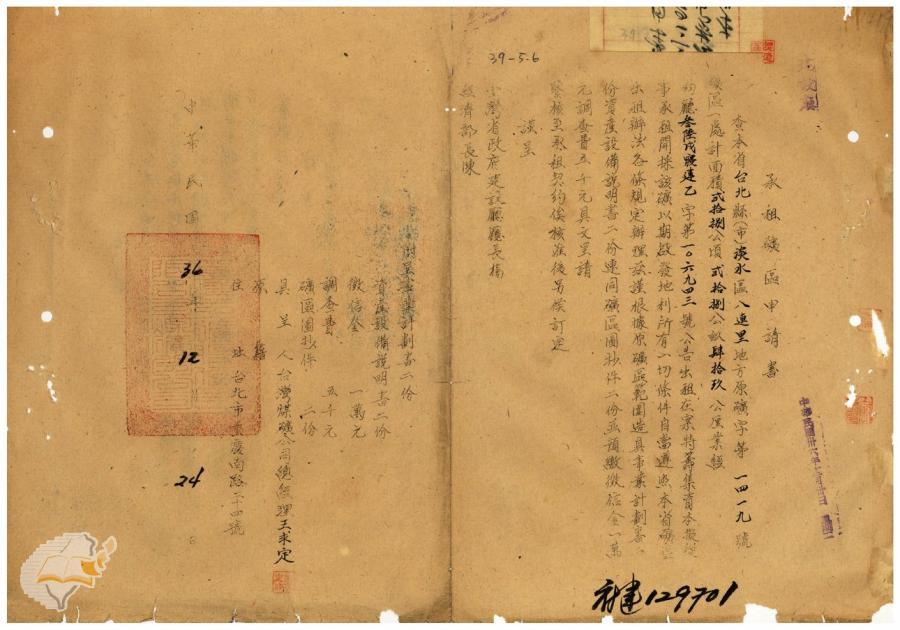 承租礦區申請書
查本省台北縣(市)淡水區八連里地方原礦字第一四一九號
礦區一處計面積貳拾捌公頃貳拾捌公畝肆拾玖公厘業經
鈞廳叁陸戌寢建乙字第一〇六九四三號公告出租在案特籌集資本擬從
事承租開採該礦以期啟發地利所有一切條件自當遵照本省礦
出租辦法各條規定辦理茲謹根據原礦區範圍造具事業計劃書二
份資產設備說明書二份連同礦區圖抄件二份並預繳徵信金一萬
元調查費五千元具文呈請
鑒核至承租契約俟核准後另候訂定
謹呈
台灣省政府建設廳廳長楊
經濟部長陳
39-5.6
附呈事業計劃書二份
資產設備說明書二份
徵信金 一萬元
調查費 五千元
礦區圖抄件 二份
具呈人 台灣煤礦公司總經理王求定
住址 台北市重慶南路二十四號
中華民國 36 年 12 月 24 日
府建129701